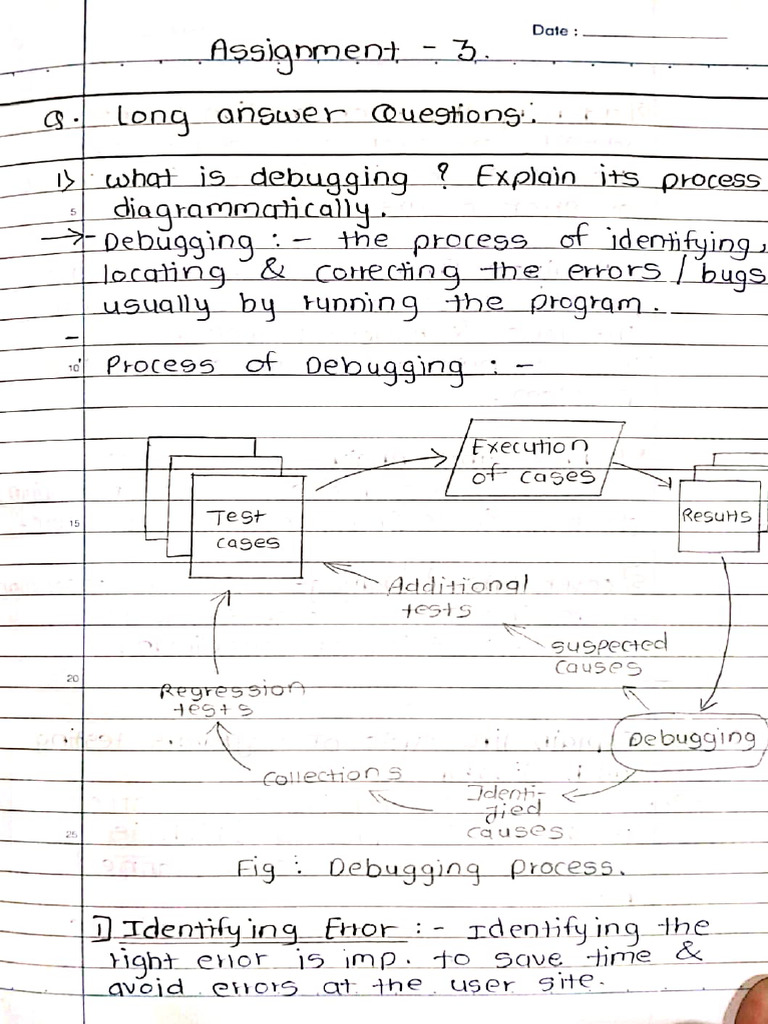 Date :
Assignment - 3.
Q. Long answer Questions:
1> what is debugging ? Explain its process
5
diagrammatically.
→- Debugging :- the process of identifying,
locating & correcting the errors / bugs
usually by running the program.
-
10 Process of Debugging :-
Execution
of cases
Test
cases
Results
15
Additional
tests
suspected
causes
20
Regression
tests
Debugging
Collections
Identi-
fied
causes
25
Fig : Debugging Process.
1] Identifying Error :- Identifying the
right error is imp. to save time &
avoid errors at the user site.